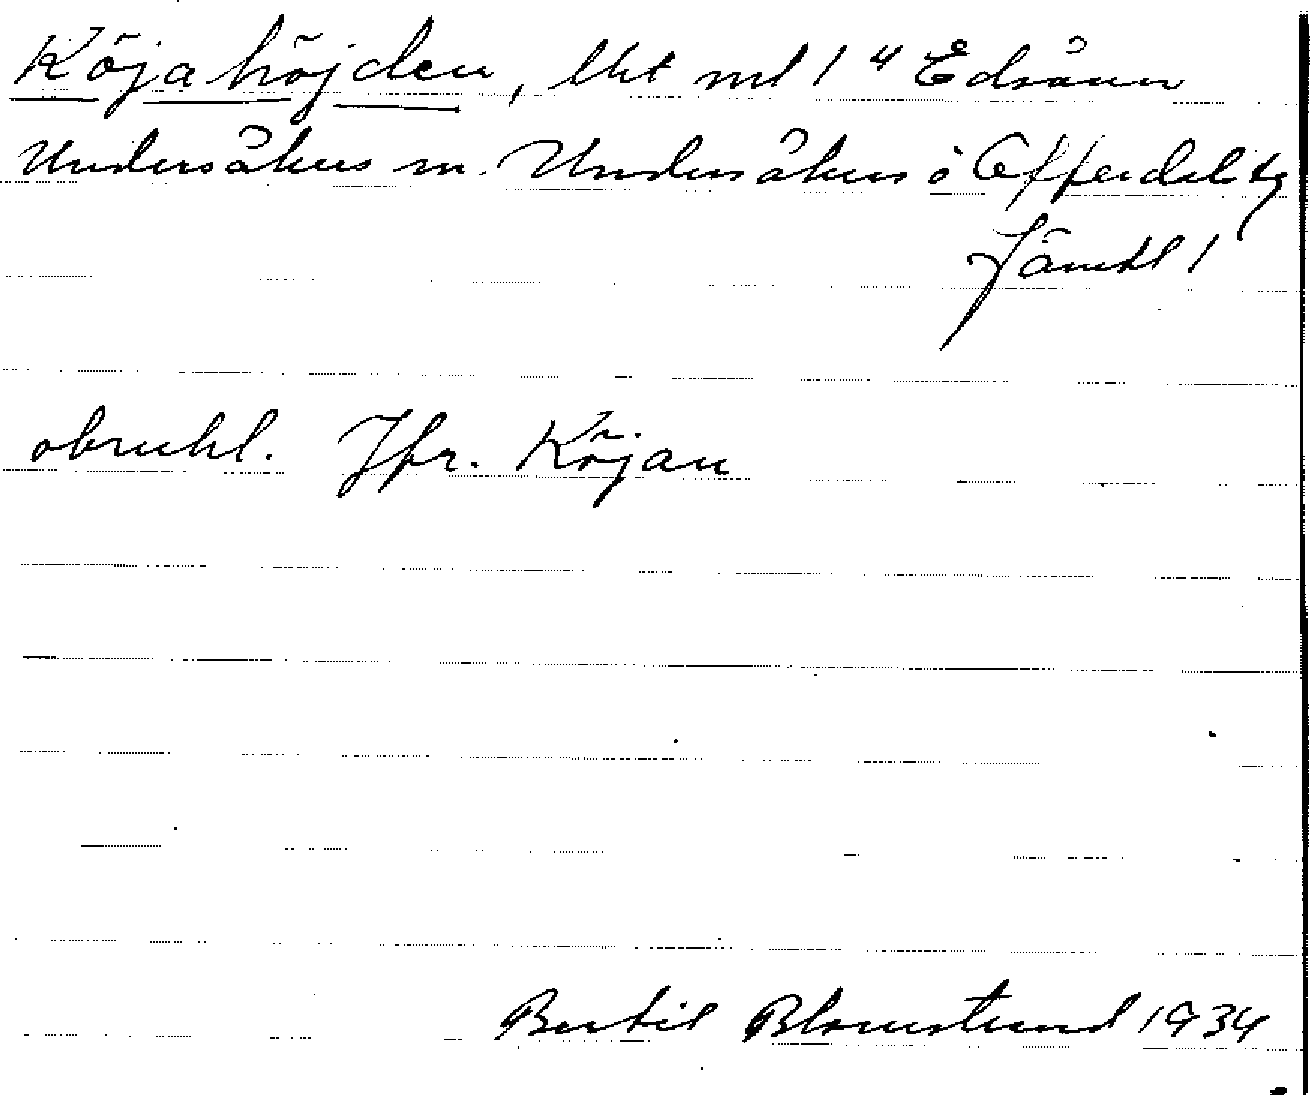 Köjahöjden, lht nr 1 4 Edsåsen
Undersåkers sn. Undersåkers o Offerdals tg
Jämtl l
obrukl. Jfr. Köjan
Bertil Blomstrand 1934